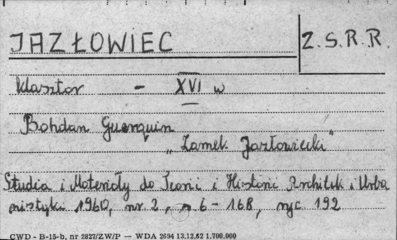 JAZŁOWIEC
Z.S.R.R.
klasztor - XVI w
Bohdan Guerquin
"Zamek Jazłowiecki"
Studia i Materiały do Teorii i Historii Architek i Urba
nistyki 1960, nr. 2, s. 6-168, ryc 192
CWD - B-15-b, nr 2827/ZW/P — WDA 2694 13.12.62 1.700.000